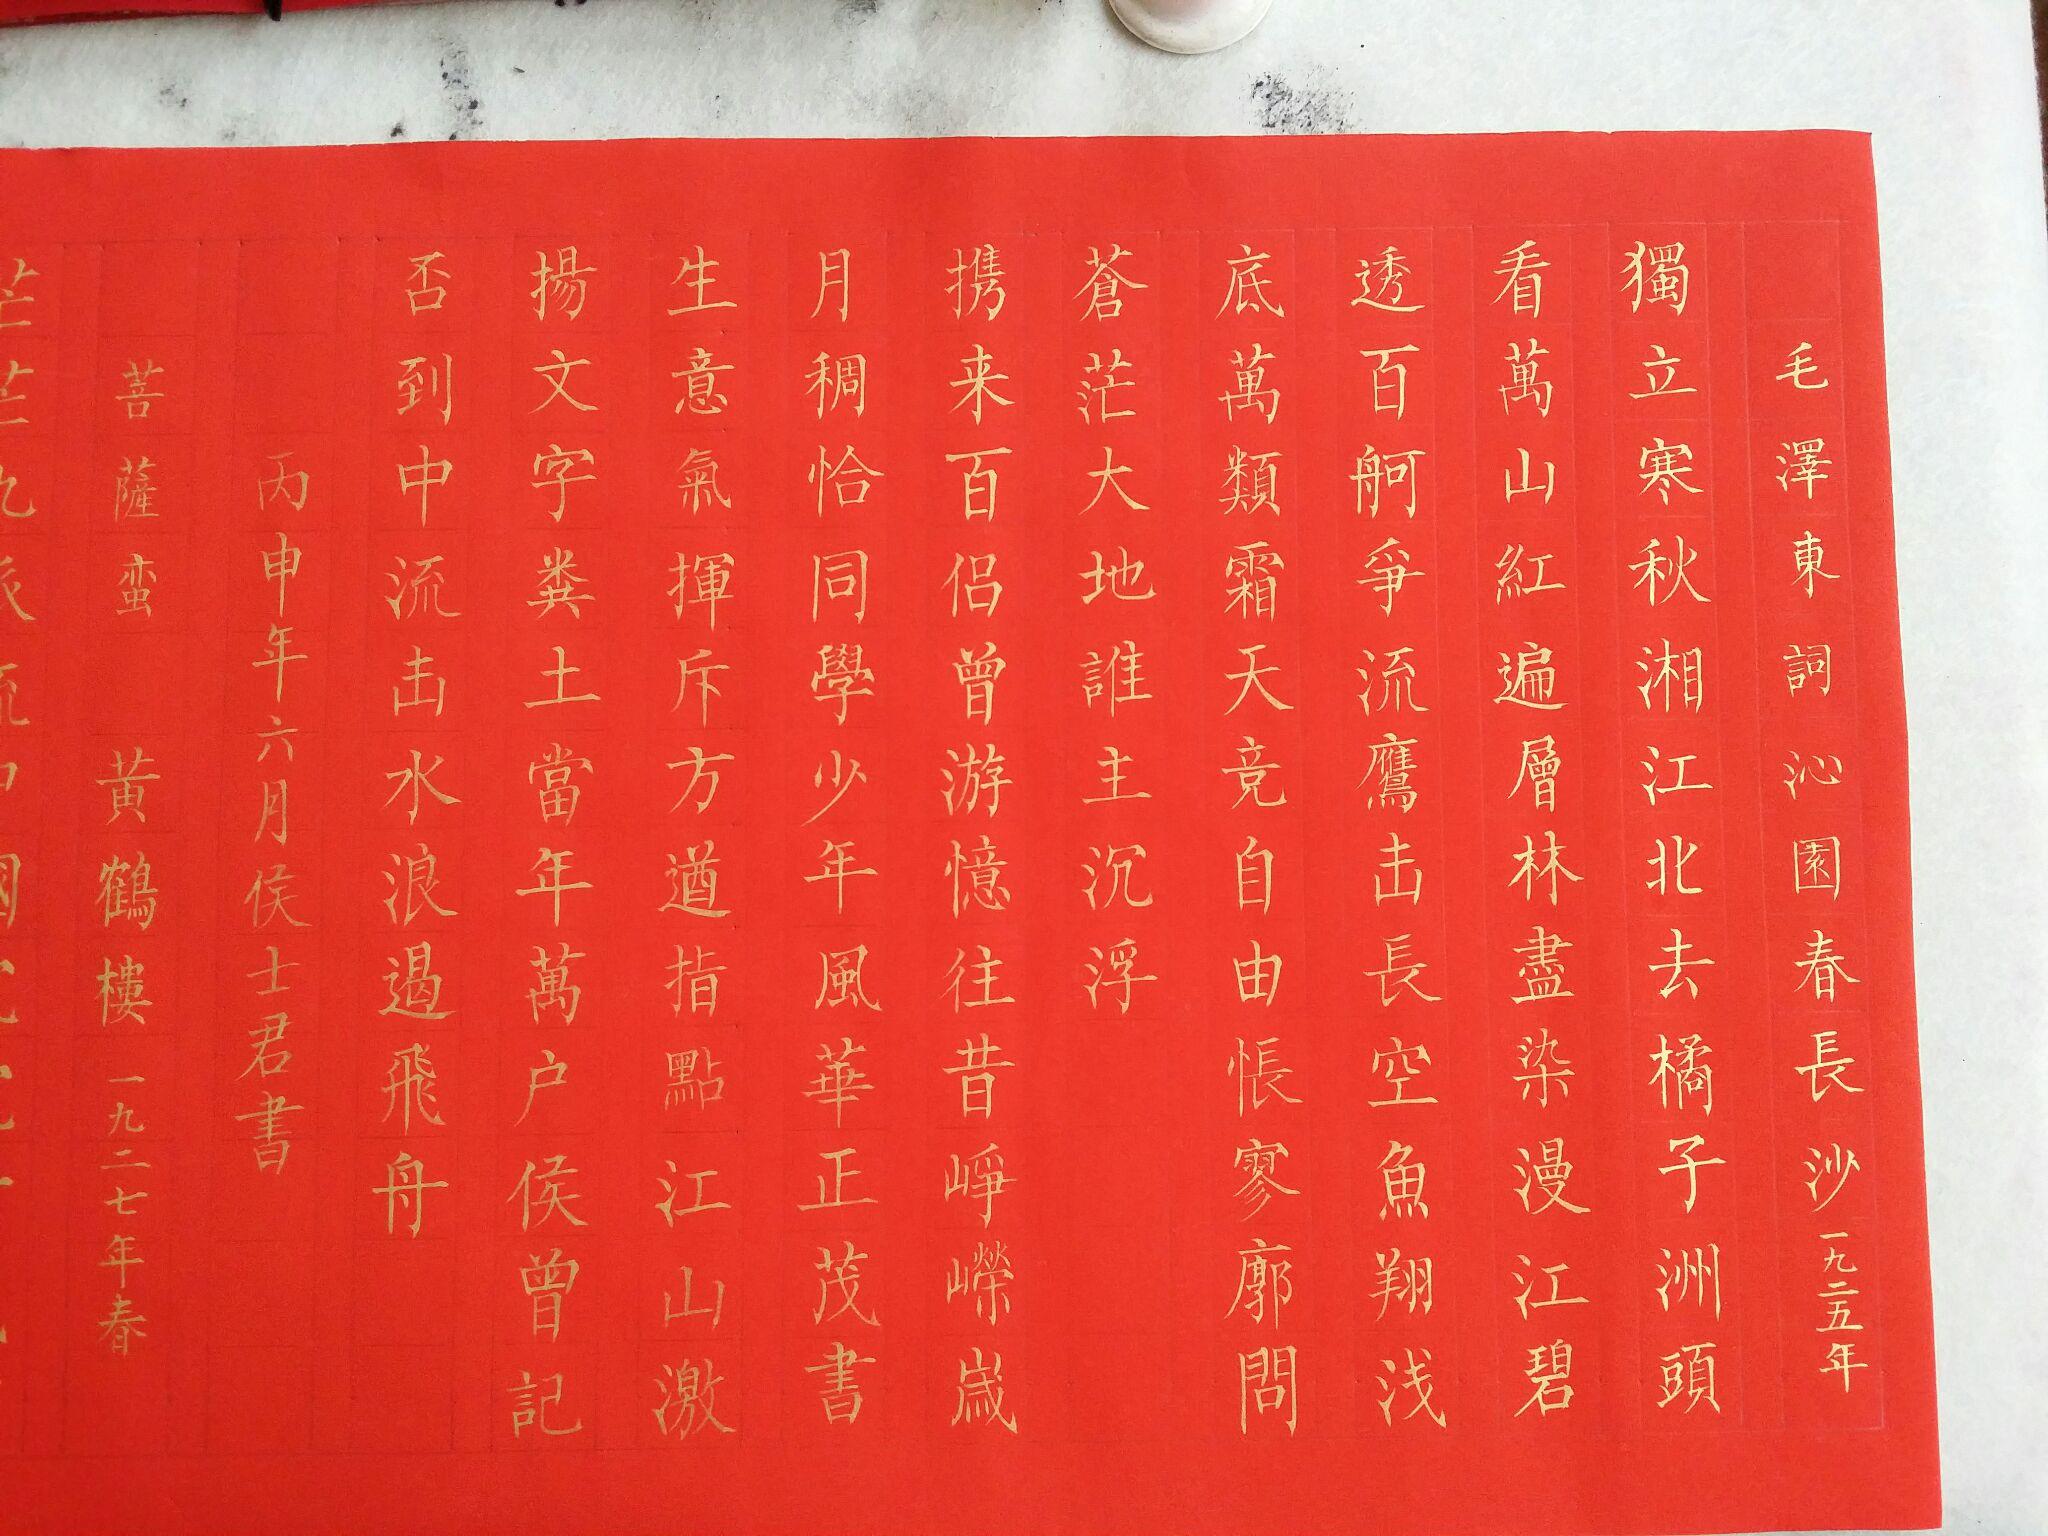 毛澤東詞沁園春長沙一九二五年
獨立寒秋湘江北去橘子洲頭
看萬山紅遍層林盡染漫江碧
透百舸爭流鷹击長空魚翔浅
底萬類霜天竞自由悵寥廓問
蒼茫大地誰主沉浮
携来百侣曾游憶往昔崢嶸歲
月稠恰同學少年風華正茂書
生意氣揮斥方遒指點江山激
揚文字粪土當年萬户侯曾記
否到中流击水浪遏飛舟
丙申年六月侯士君書
菩薩蛮黄鶴樓一九二七年春
茫茫九派流中國沉沉一